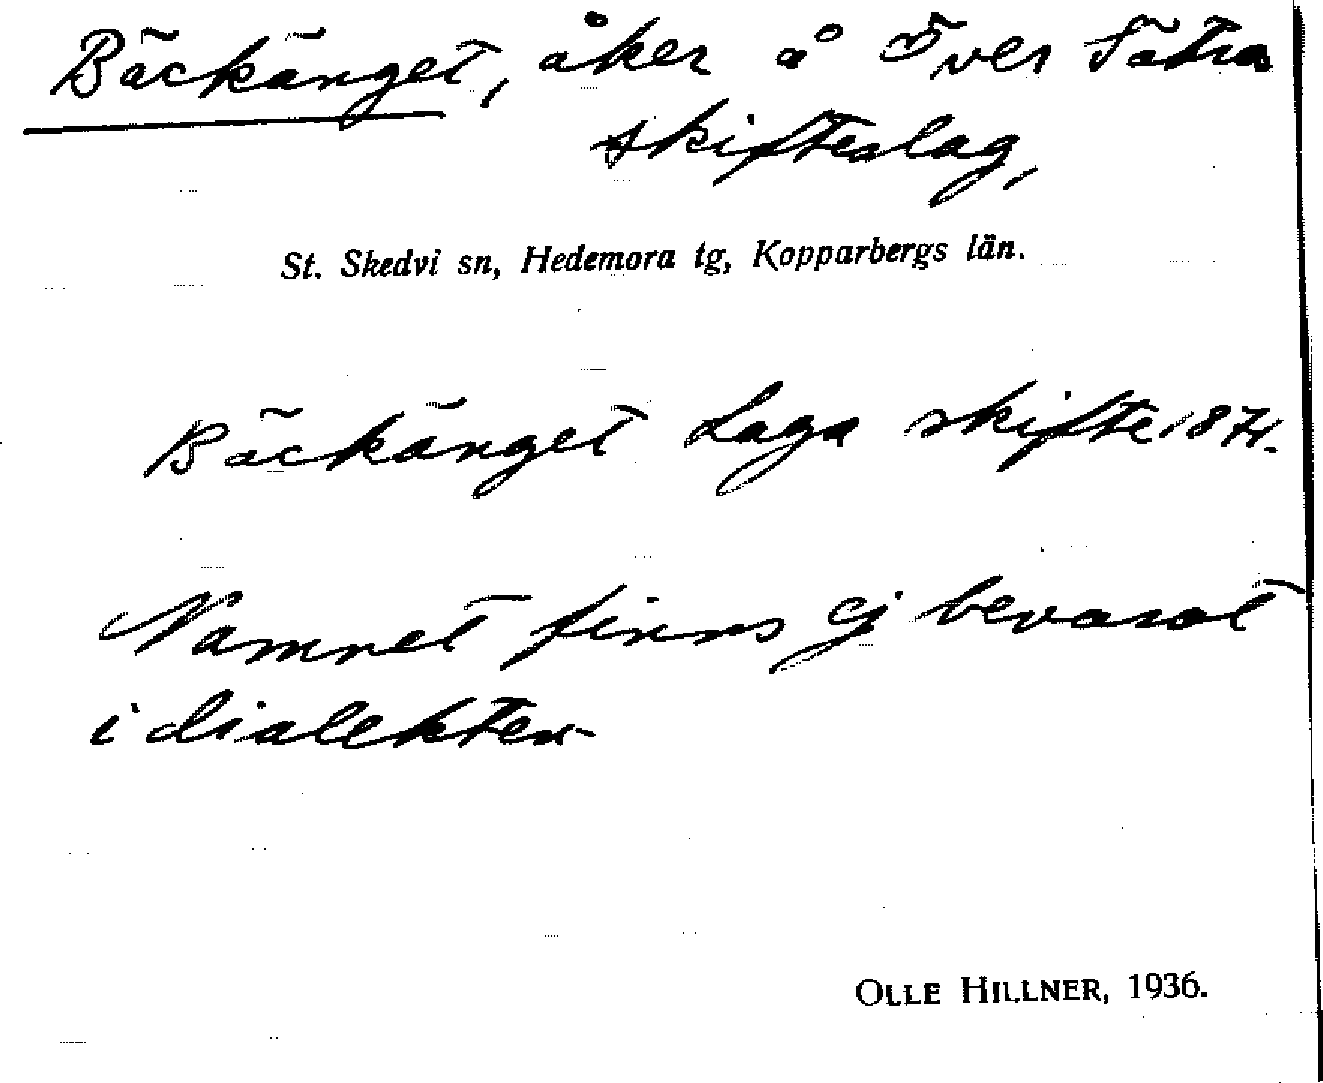 Bäckänget, åker å Över Sätra
skifteslag,
St. Skedvi sn, Hedemora tg, Kopparbergs län.
Bäckänget Laga skifte 1874.
Namnet finns ej bevarat
i dialekten
OLLE HILLNER, 1936.